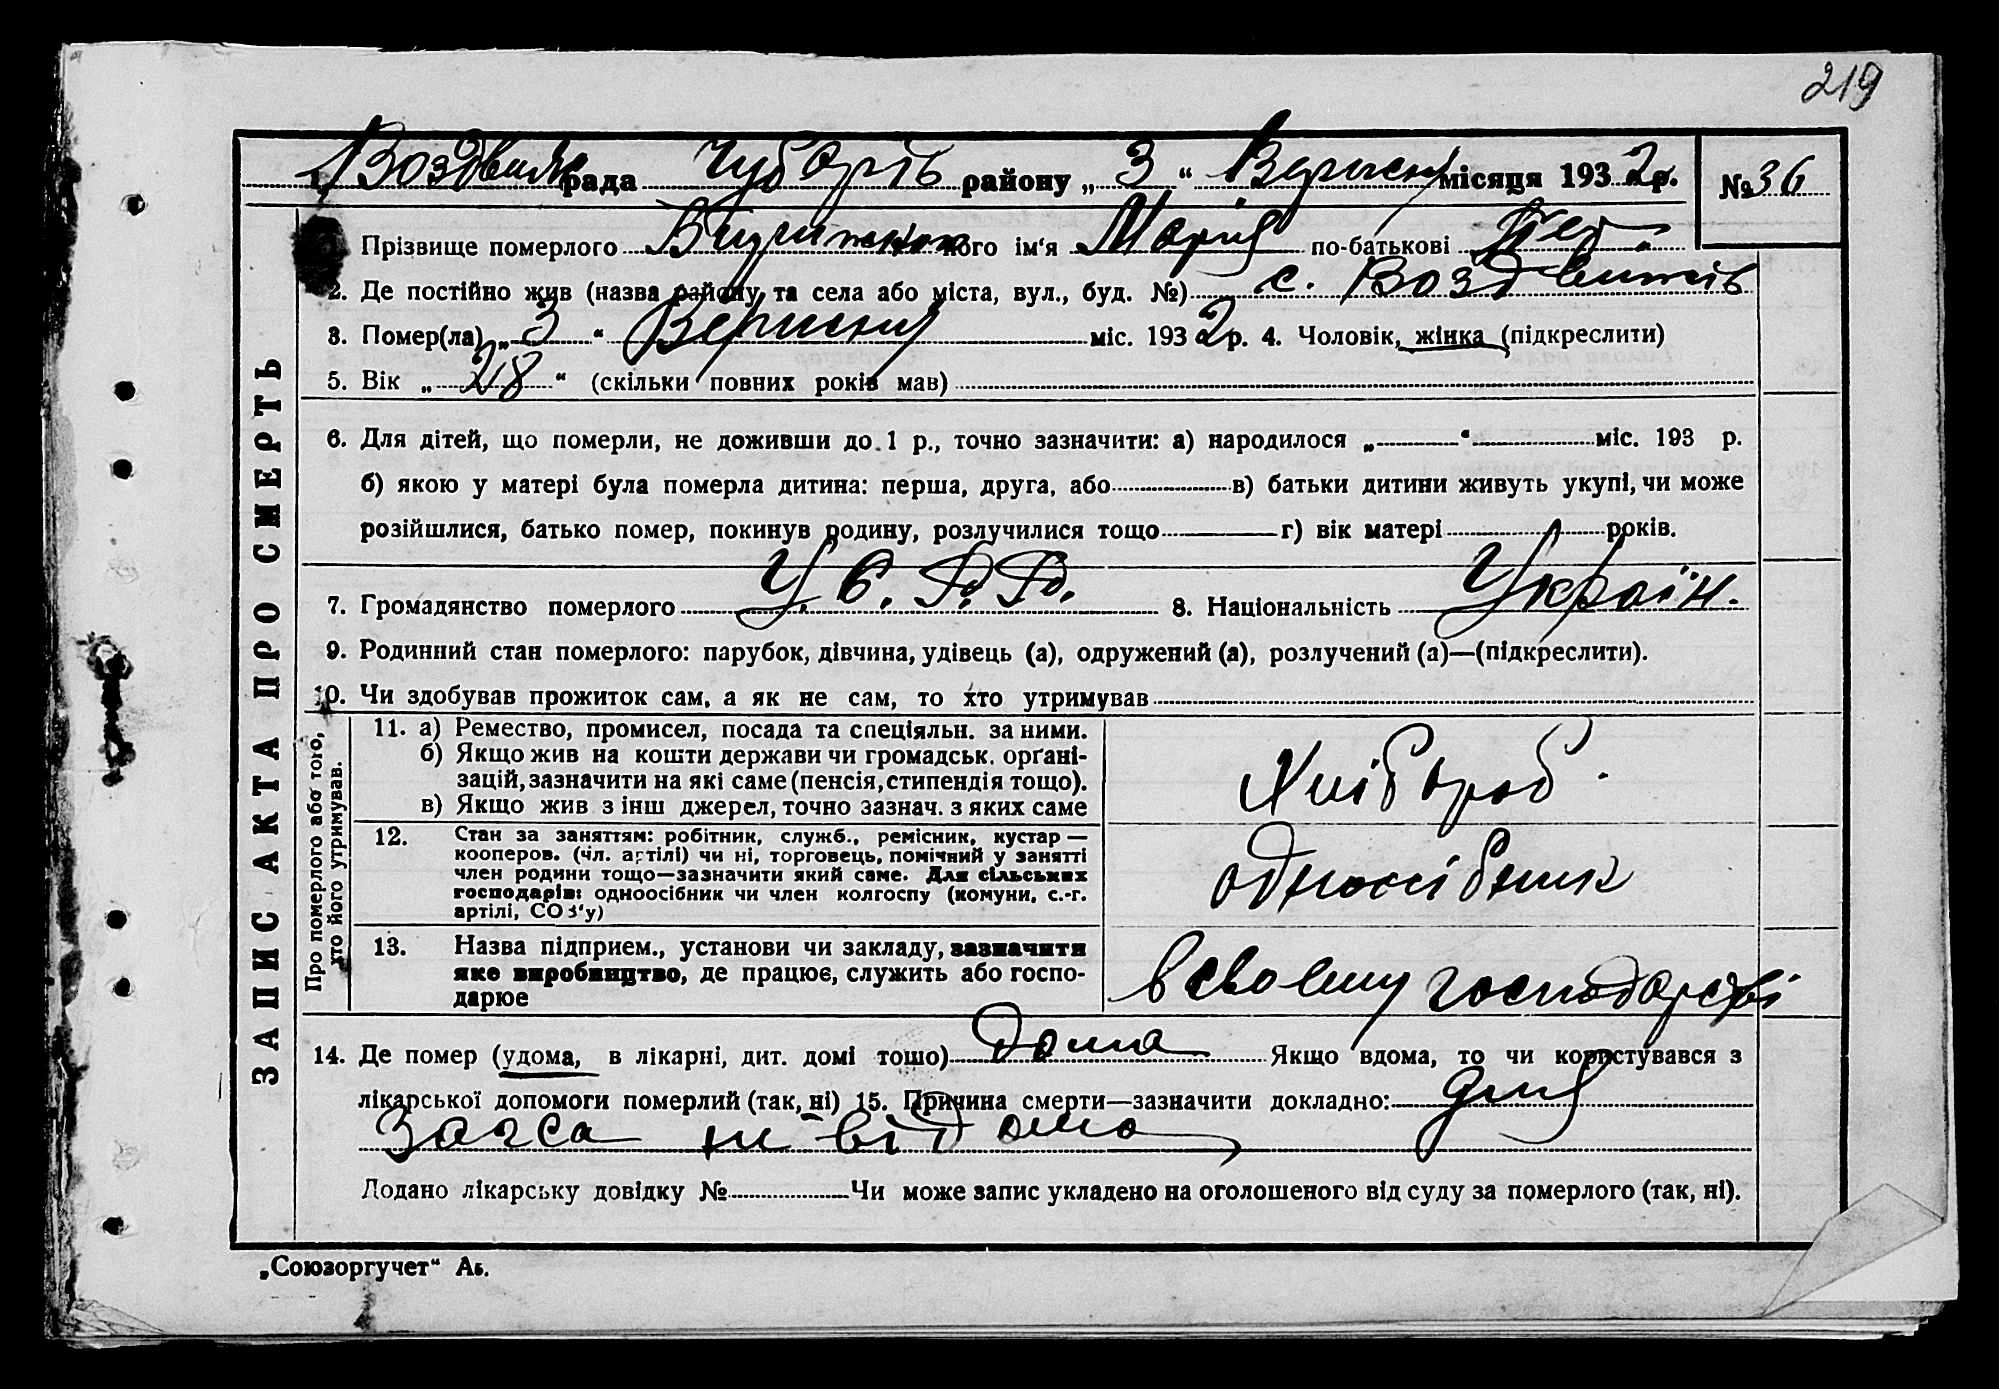 219
Воздвиж рада Чубарів району „ 3 “ Вересня місяця 1932 р. № 36
Прізвище померлого його ім‘я Марія по-батькові
2. Де постійно жив (назва району та села або міста, вул., буд. №) с. Воздвижів
3. Помер(ла) „ 3 “ Вересня міс. 1932 р. 4. Чоловік, жінка (підкреслити)
5. Вік „ 28 “ (скільки повних років мав)
6. Для дітей, що померли, не доживши до 1 р., точно зазначити: а) народилося „ “ міс. 193 р.
б) якою у матері була померла дитина: перша, друга, або в) батьки дитини живуть укупі, чи може
розійшлися, батько помер, покинув родину, розлучилися тощо г) вік матері років.
7. Громадянство померлого У. С. Р. Р. 8. Національність Україн.
9. Родинний стан померлого: парубок, дівчина, удівець (а), одружений (а), розлучений (а)—(підкреслити).
10. Чи здобував прожиток сам, а як не сам, то хто утримував
ЗАПИС АКТА ПРО СМЕРТЬ
Про померлого або того,
хто його утримував.
11. а) Ремество, промисел, посада та спеціяльн. за ними.
б) Якщо жив на кошти держави чи громадськ. орґані-
зацій, зазначити на які саме (пенсія, стипендія тощо).
в) Якщо жив з інш джерел, точно зазнач. з яких саме
Хліброб.
12. Стан за заняттям: робітник, служб., ремісник, кустар —
кооперов. (чл. артілі) чи ні, торговець, помічний у занятті
член родини тощо—зазначити який саме. Для сільських
господарів: одноосібник чи член колгоспу (комуни, с.-г.
артілі, СОЗ‘у)
одноосібник
13. Назва підприєм., установи чи закладу, зазначити
яке виробництво, де працює, служить або госпо-
дарює
в своєму господарстві
14. Де помер (удома, в лікарні, дит. домі тошо) дома Якщо вдома, то чи користувався з
лікарської допомоги померлий (так, ні) 15. Причина смерти—зазначити докладно: для
Загса не відома
Додано лікарську довідку № Чи може запис укладено на оголошеного від суду за померлого (так, ні).
„Союзоргучет“ Аб.